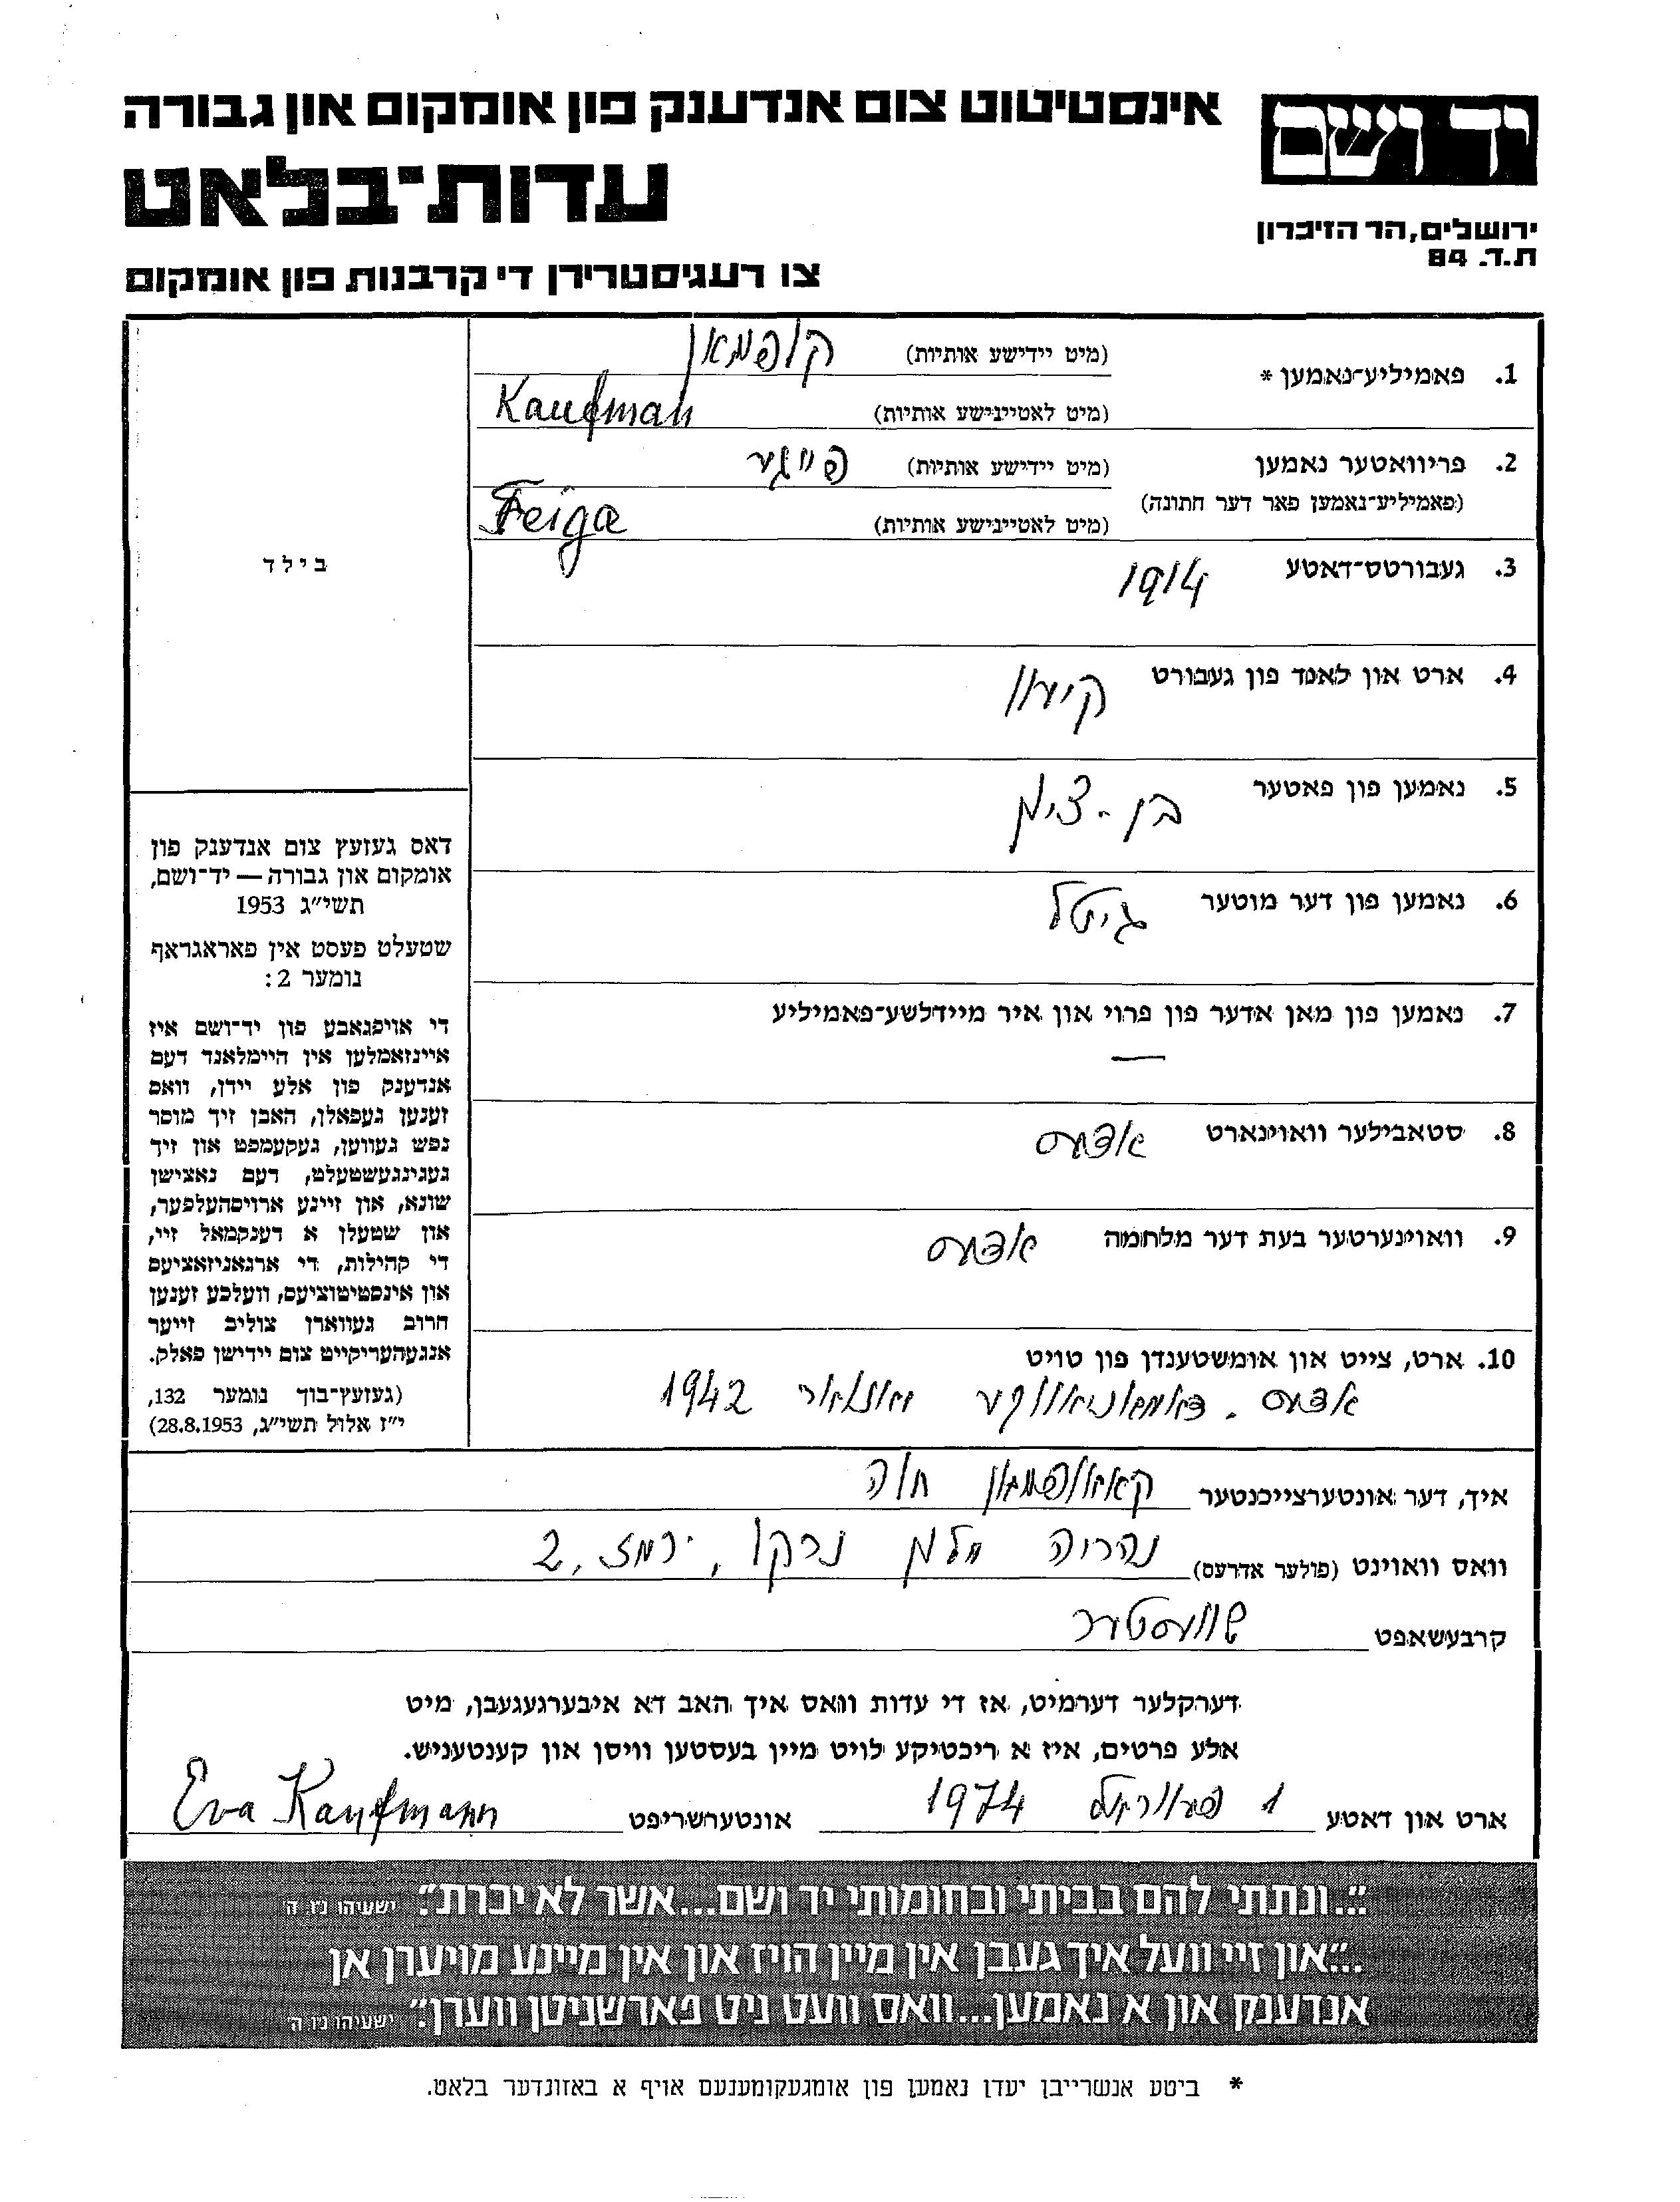 יד ושם
ירושלים, הר הזיכרון
ת.ד. 84
אינסטיטוט צום אנדענק פון אומקום און גבורה
עדות־בלאט
צו רעגיסטרירן די קרבנות פון אומקום
1. פאמיליע־נאמען * (מיט יידישע אותיות) קופמאן
(מיט לאטיינישע אותיות) Kaufman
2. פריוואטער נאמען (מיט יידישע אותיות) פייגע
(פאמיליע־נאמען פאר דער חתונה) (מיט לאטיינישע אותיות) Feiga
3. געבורטס־דאטע 1914
4. ארט און לאנד פון געבורט קיעוו
5. נאמען פון פאטער בן-ציון
6. נאמען פון דער מוטער גיטל
7. נאמען פון מאן אדער פון פרוי און איר מיידלשע־פאמיליע
—
8. סטאבילער וואוינארט אדעס
9. וואוינערטער בעת דער מלחמה אדעס
10. ארט, צייט און אומשטענדן פון טויט
אדעס - דאמאניאווקע יאנואר 1942
בילד
דאס געזעץ צום אנדענק פון
אומקום און גבורה — יד־ושם,
תשי״ג 1953
שטעלט פעסט אין פאראגראף
נומער 2:
די אויפגאבע פון יד־ושם איז
איינזאמלען אין היימלאנד דעם
אנדענק פון אלע יידן, וואס
זענען געפאלן, האבן זיך מוסר
נפש געווען, געקעמפט און זיך
געגינגעשטעלט, דעם נאצישן
שונא, און זיינע ארויסהעלפער,
און שטעלן א דענקמאל זיי,
די קהילות, די ארגאניזאציעס
און אינסטיטוציעס, וועלכע זענען
חרוב געווארן צוליב זייער
אנגעהעריקייט צום יידישן פאלק.
(געזעץ־בוך נומער 132,
י״ז אלול תשי״ג, 28.8.1953)
איך, דער אונטערצייכנטער קאאופמאן חוה
וואס וואוינט (פולער אדרעס) נהריה מלון נרקו, 2
קרבעשאפט שוועסטער
דערקלער דערמיט, אז די עדות וואס איך האב דא איבערגעגעבן, מיט
אלע פרטים, איז א ריכטיקע לויט מיין בעסטען וויסן און קענטעניש.
ארט און דאטע 1 1974 אונטערשריפט Eva Kaufmann
״...ונתתי להם בביתי ובחומותי יד ושם...אשר לא יכרת״. ישעיהו נ״ו ה׳
״...און זיי וועל איך געבן אין מיין הויז און אין מיינע מויערן אן
אנדענק און א נאמען...וואס וועט ניט פארשניטן ווערן״. ישעיהו נ״ו ה׳
* ביטע אנשרייבן יעדן נאמען פון אומגעקומענעם אויף א באזונדער בלאט.